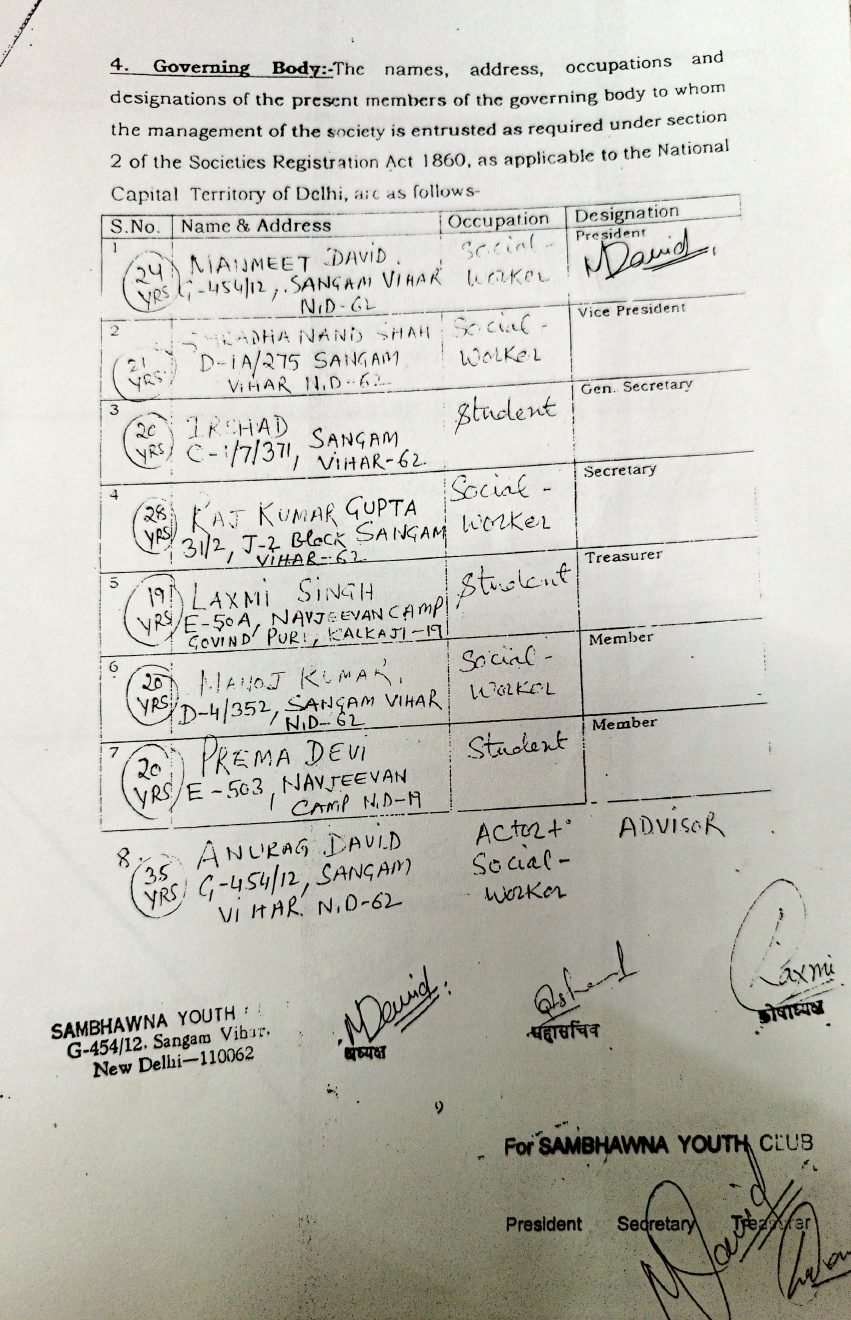 4. Governing Body:-The names, address, occupations and
designations of the present members of the governing body to whom
the management of the society is entrusted as required under section
2 of the Societies Registration Act 1860, as applicable to the National
Capital Territory of Delhi, are as follows-
S.No. Name & Address Occupation Designation
1 24 YRS MANMEET DAVID. Social- President
G-454/12, SANGAM VIHAR Worker MDavid
N.D-62
2 21 YRS. SHRADHA NAND SHAH Social- Vice President
D-1A/275 SANGAM Worker
VIHAR N.D-62.
3 20 YRS IRSHAD Student Gen. Secretary
C-1/7/371, SANGAM
VIHAR-62.
4 28 YRS RAJ KUMAR GUPTA Social- Secretary
31/2, J-2 Block SANGAM Worker
VIHAR-62
5 19 YRS LAXMI SINGH Student Treasurer
E-50A, NAVJEEVAN CAMP
GOVIND PURI, KALKAJI-19
6 20 YRS MANOJ KUMAR. Social- Member
D-4/352, SANGAM VIHAR Worker
N.D-62
7 20 YRS PREMA DEVI Student Member
E-503, NAVJEEVAN
CAMP N.D-19
8. 35 YRS ANURAG DAVID Actor + ADVISOR
G-454/12, SANGAM Social-
VIHAR. N.D-62 Worker
SAMBHAWNA YOUTH
G-454/12, Sangam Vihar,
New Delhi—110062
MDavid.
अध्यक्ष
महासचिव
Laxmi
कोषाध्यक्ष
9
For SAMBHAWNA YOUTH CLUB
President Secretary Treasurer
MDavid